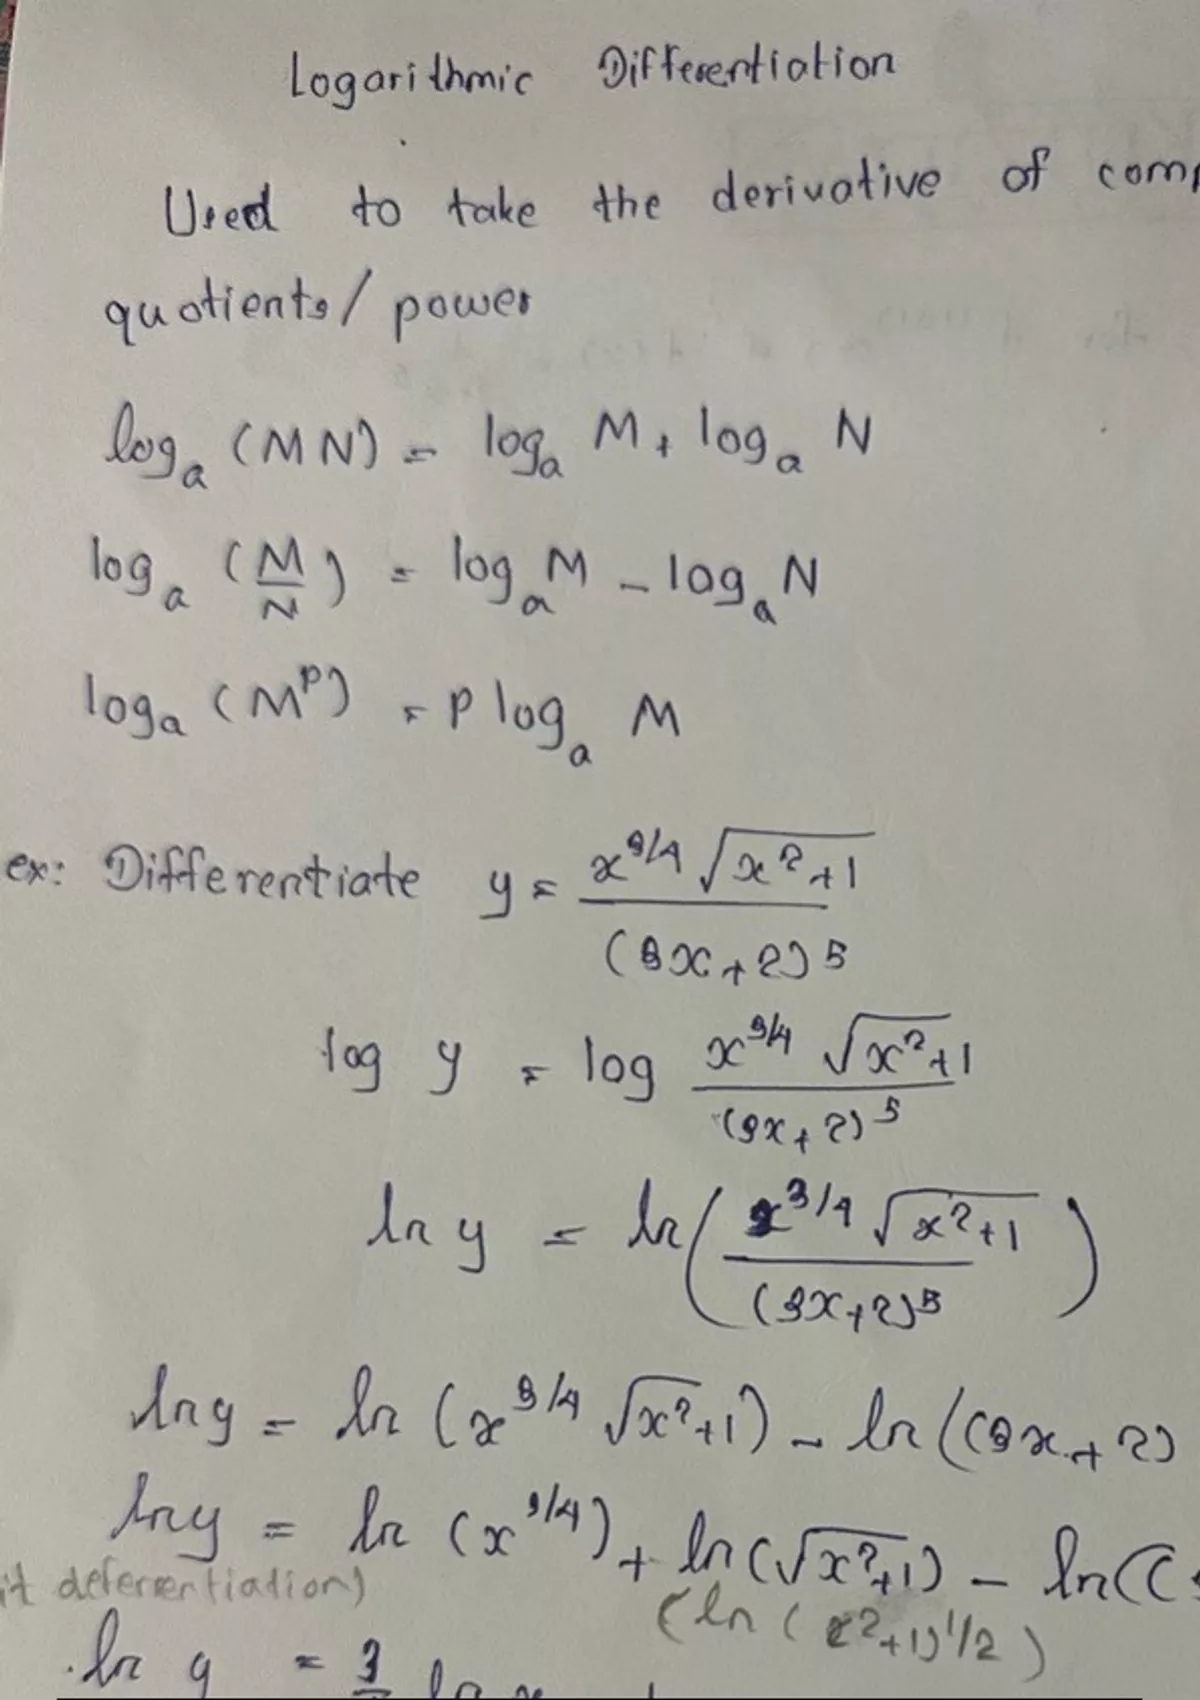 Logarithmic Differentiation
Used to take the derivative of com
quotients/ power
logₐ (MN) = logₐ M + logₐ N
logₐ (M/N) = logₐ M - logₐ N
logₐ (Mᵖ) = P logₐ M
ex: Differentiate y = x^3/4 √(x²+1) / (3x+2)⁵
log y = log x^3/4 √(x²+1) / (3x+2)⁵
ln y = ln( x^3/4 √(x²+1) / (3x+2)⁵ )
ln y = ln (x^3/4 √(x²+1)) - ln((3x+2)
ln y = ln (x^3/4) + ln(√(x²+1)) - ln((
it deferentiation) (ln (x²+1)^1/2)
ln y = 3 ln x